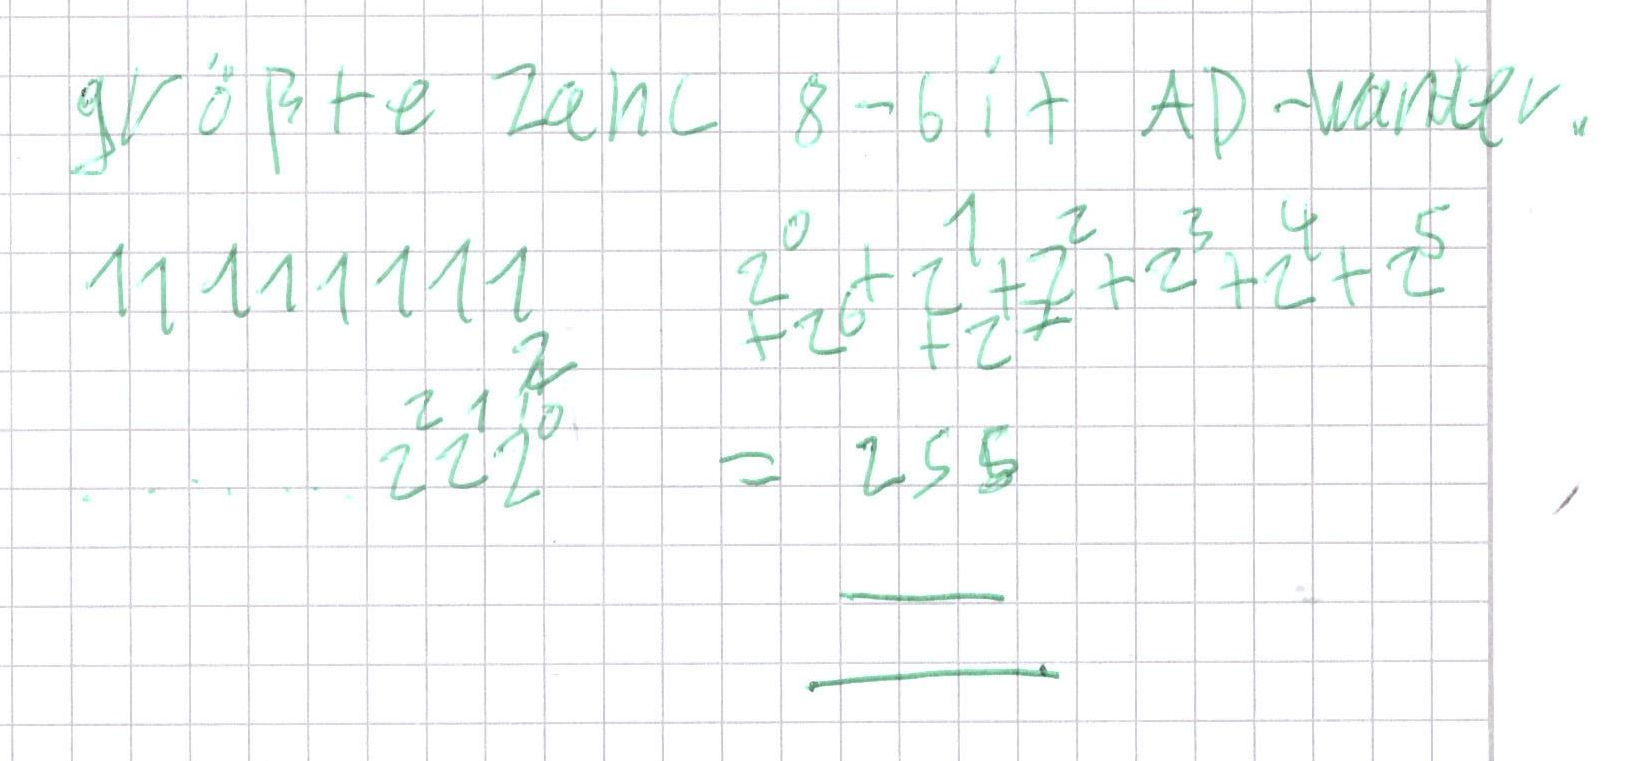 größte Zahl 8-bit AD-Wandler.
11111111 2⁰ + 2¹ + 2² + 2³ + 2⁴ + 2⁵
+ 2⁶ + 2⁷
2² 2¹ 2⁰ = 255